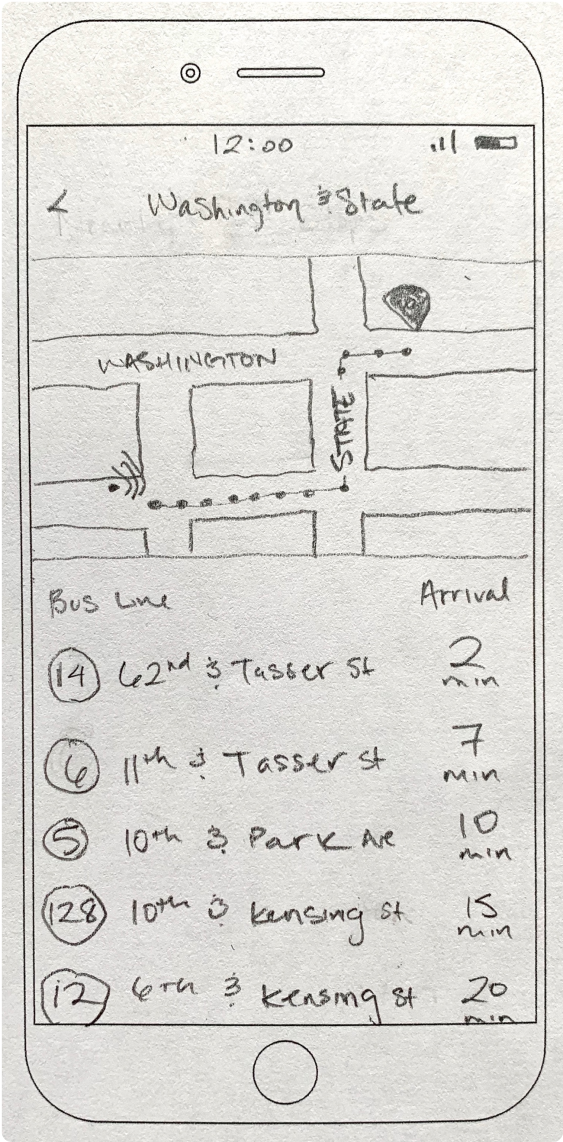 12:00
< Washington & State
WASHINGTON
STATE
Bus Line Arrival
14 62nd & Tasser St 2 min
6 11th & Tasser St 7 min
5 10th & Park Ave 10 min
128 10th & Kensing St 15 min
12 6th & Kensing St 20 min